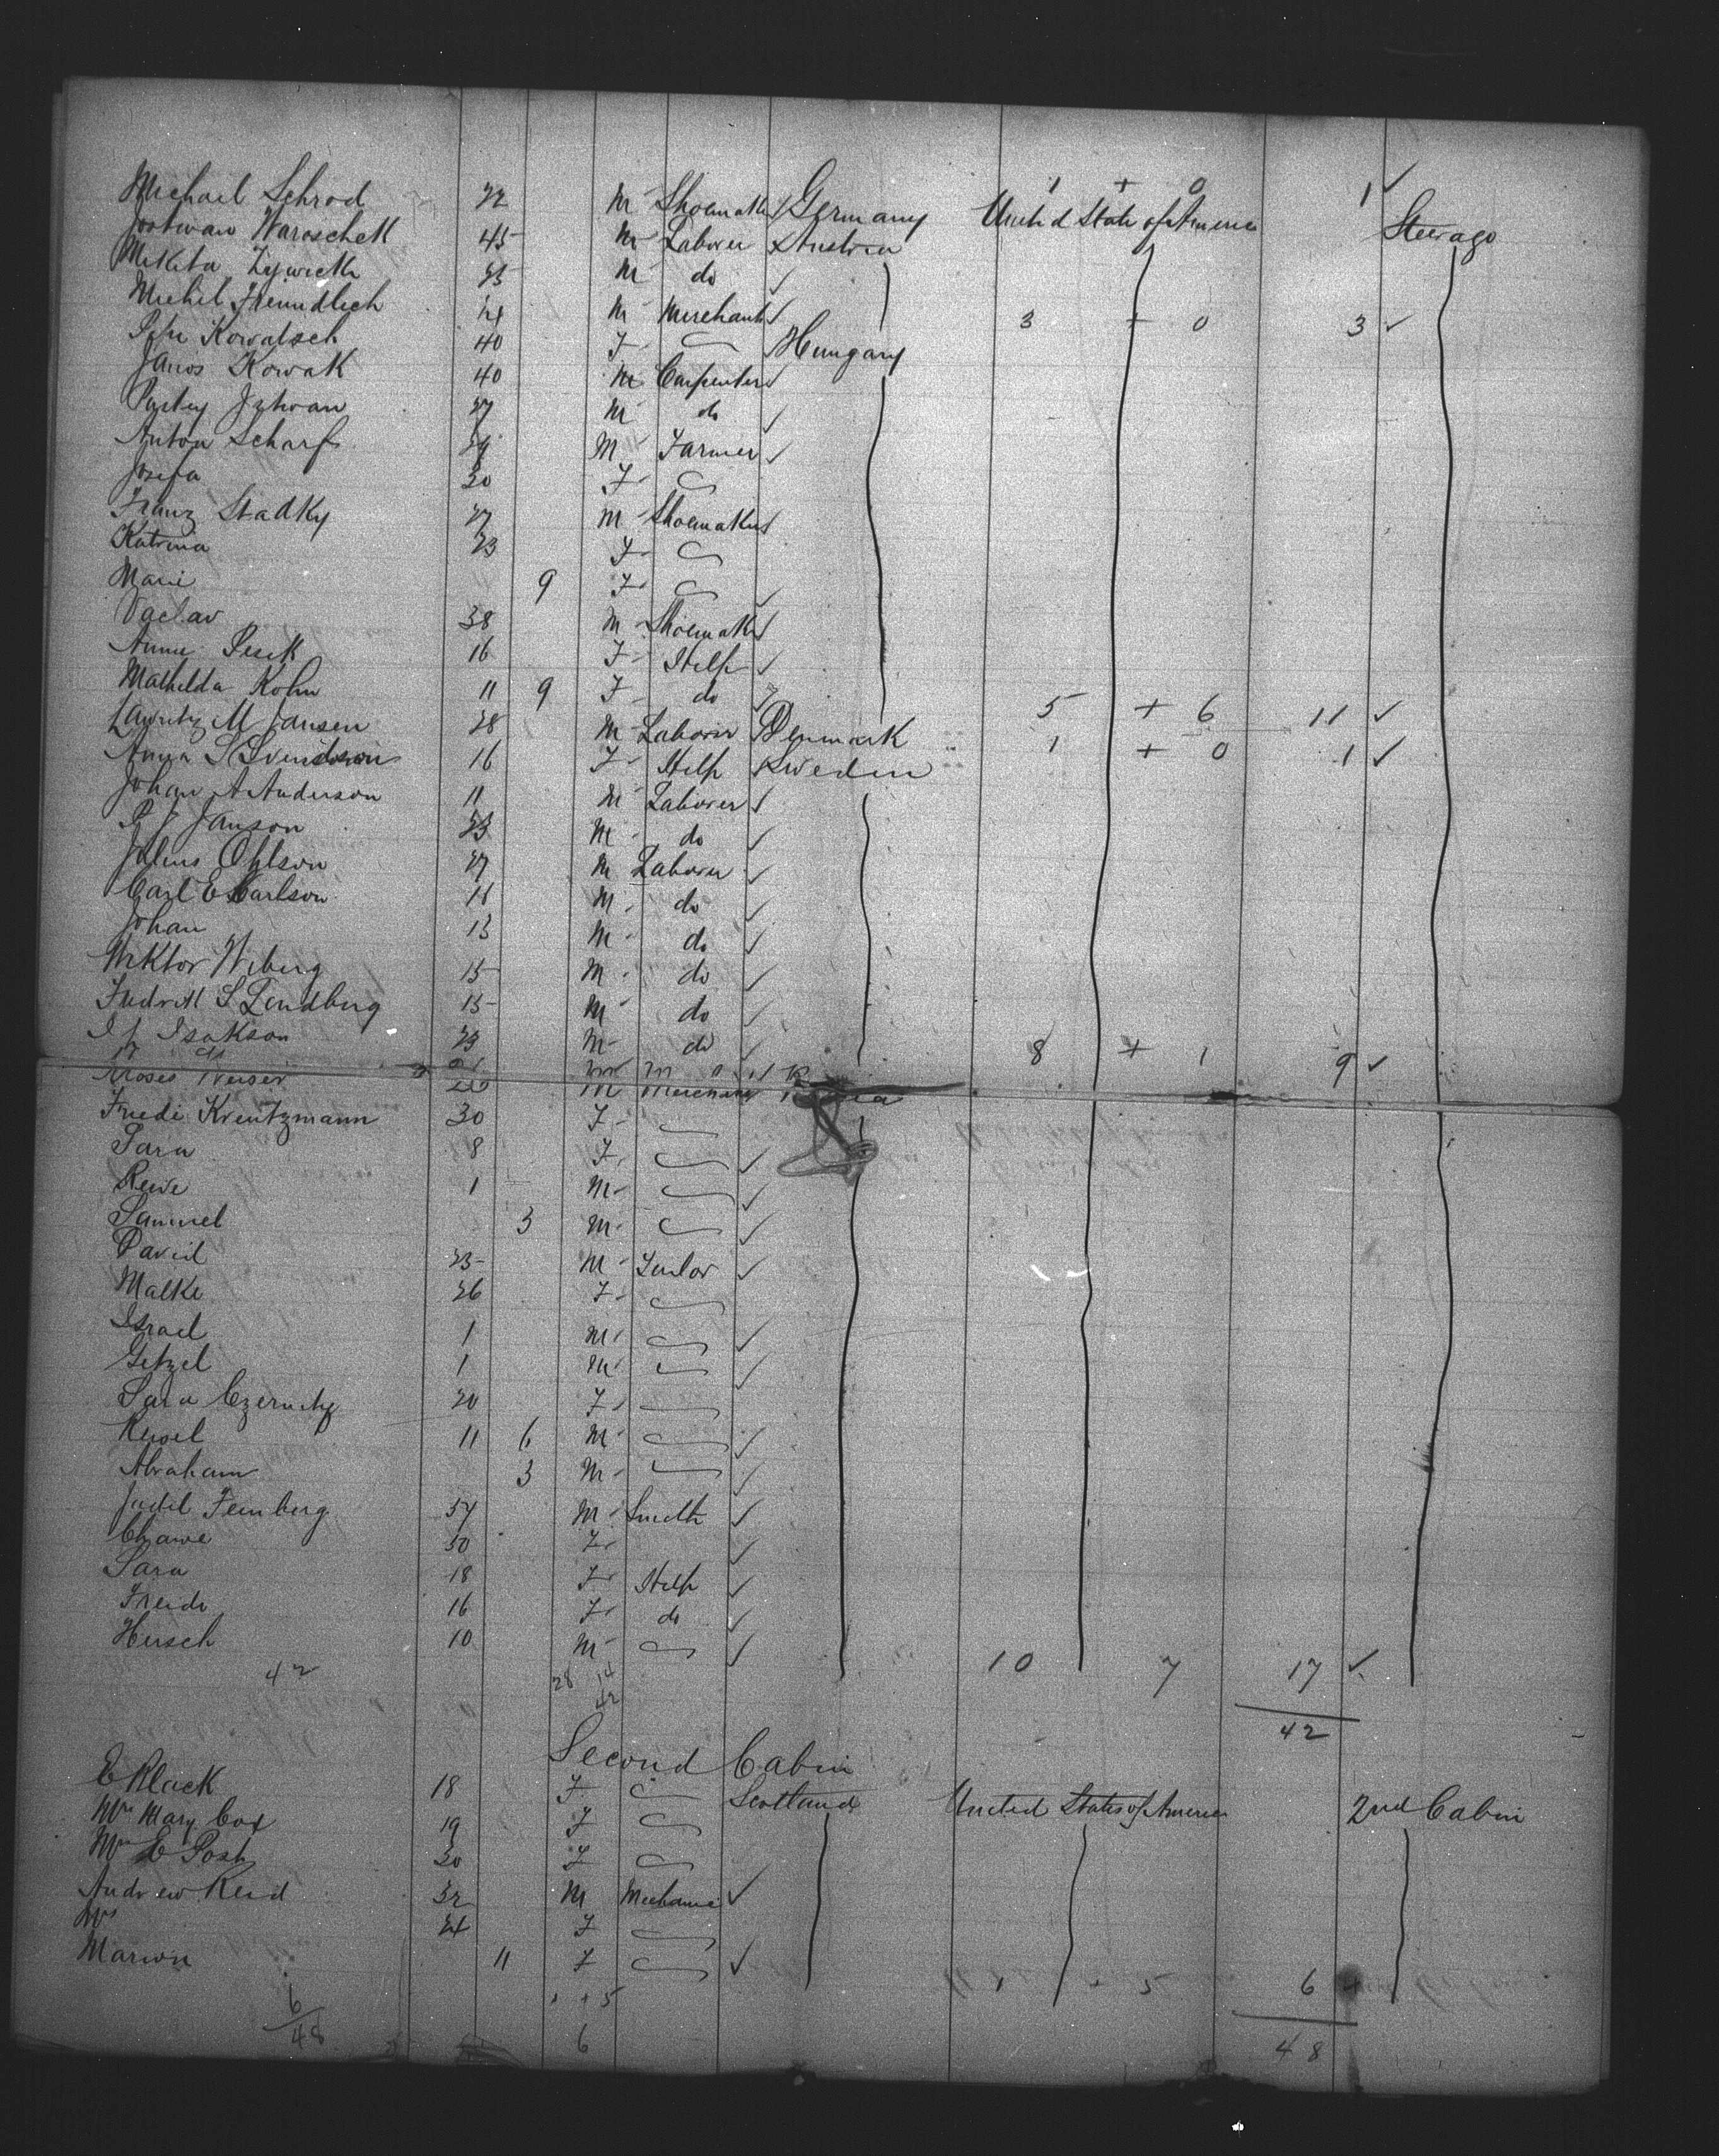 1 + 0 1 ✓
Michael Schrod 22 M Shoemaker Germany United State of America Steerage
Waroschek 45 M Laborer Austria
Mikita 25 M do
Michel Freundlich 24 M Merchant 3 + 0 3 ✓
Kowatsch 40 F Hungary
Janos Kowak 40 M Carpenter
Istwan 27 M do
Anton Scharf 29 M Farmer
Josefa 30 F
Franz Stadky 27 M Shoemaker
Katrina 23 F
Marie 9 F
Vaclav 38 M Shoemak
Anna Pesek 16 F Help
Mathilda Kohn 11 9 F do 5 + 6 11 ✓
Lauritz M Jansen 28 M Laborer Denmark 1 + 0 1 ✓
Anna S Svendson 16 F Help Sweden
Johan A Anderson 11 M Laborer
P J Janson 23 M do
Julius Ohlson 27 M Laborer
Carl E Carlson 18 M do
Johan 13 M do
Wiktor Wiberg 15 M do
S Lendberg 15 M do
Isakson 23 M do 8 + 1 9 ✓
Moses Weiser 20 M Merchant
Friedi Kreutzmann 30 F
Sara 8 F
Rewe 1 M
Samuel 3 M
David 25 M
Malke 26 F
Israel 1 M
Getzel 1 M
Sara 20 F
Keisel 11 6 M
Abraham 3 M
Judel Feinberg 54 M Smith
Chawe 50 F
Sara 18 F Help
Freide 16 F do
Hersch 10 M 10 7 17 ✓
42 28 14
42 42
Second Cabin
E Black 18 F Scotland United States of America 2nd Cabin
Mrs Mary Cox 19 F
Mrs E Post 30 F
Andrew Reid 32 M Mechanic
Mrs 24 F
Marion 11 F 1 + 5 6
6 1 + 5
48 6 48